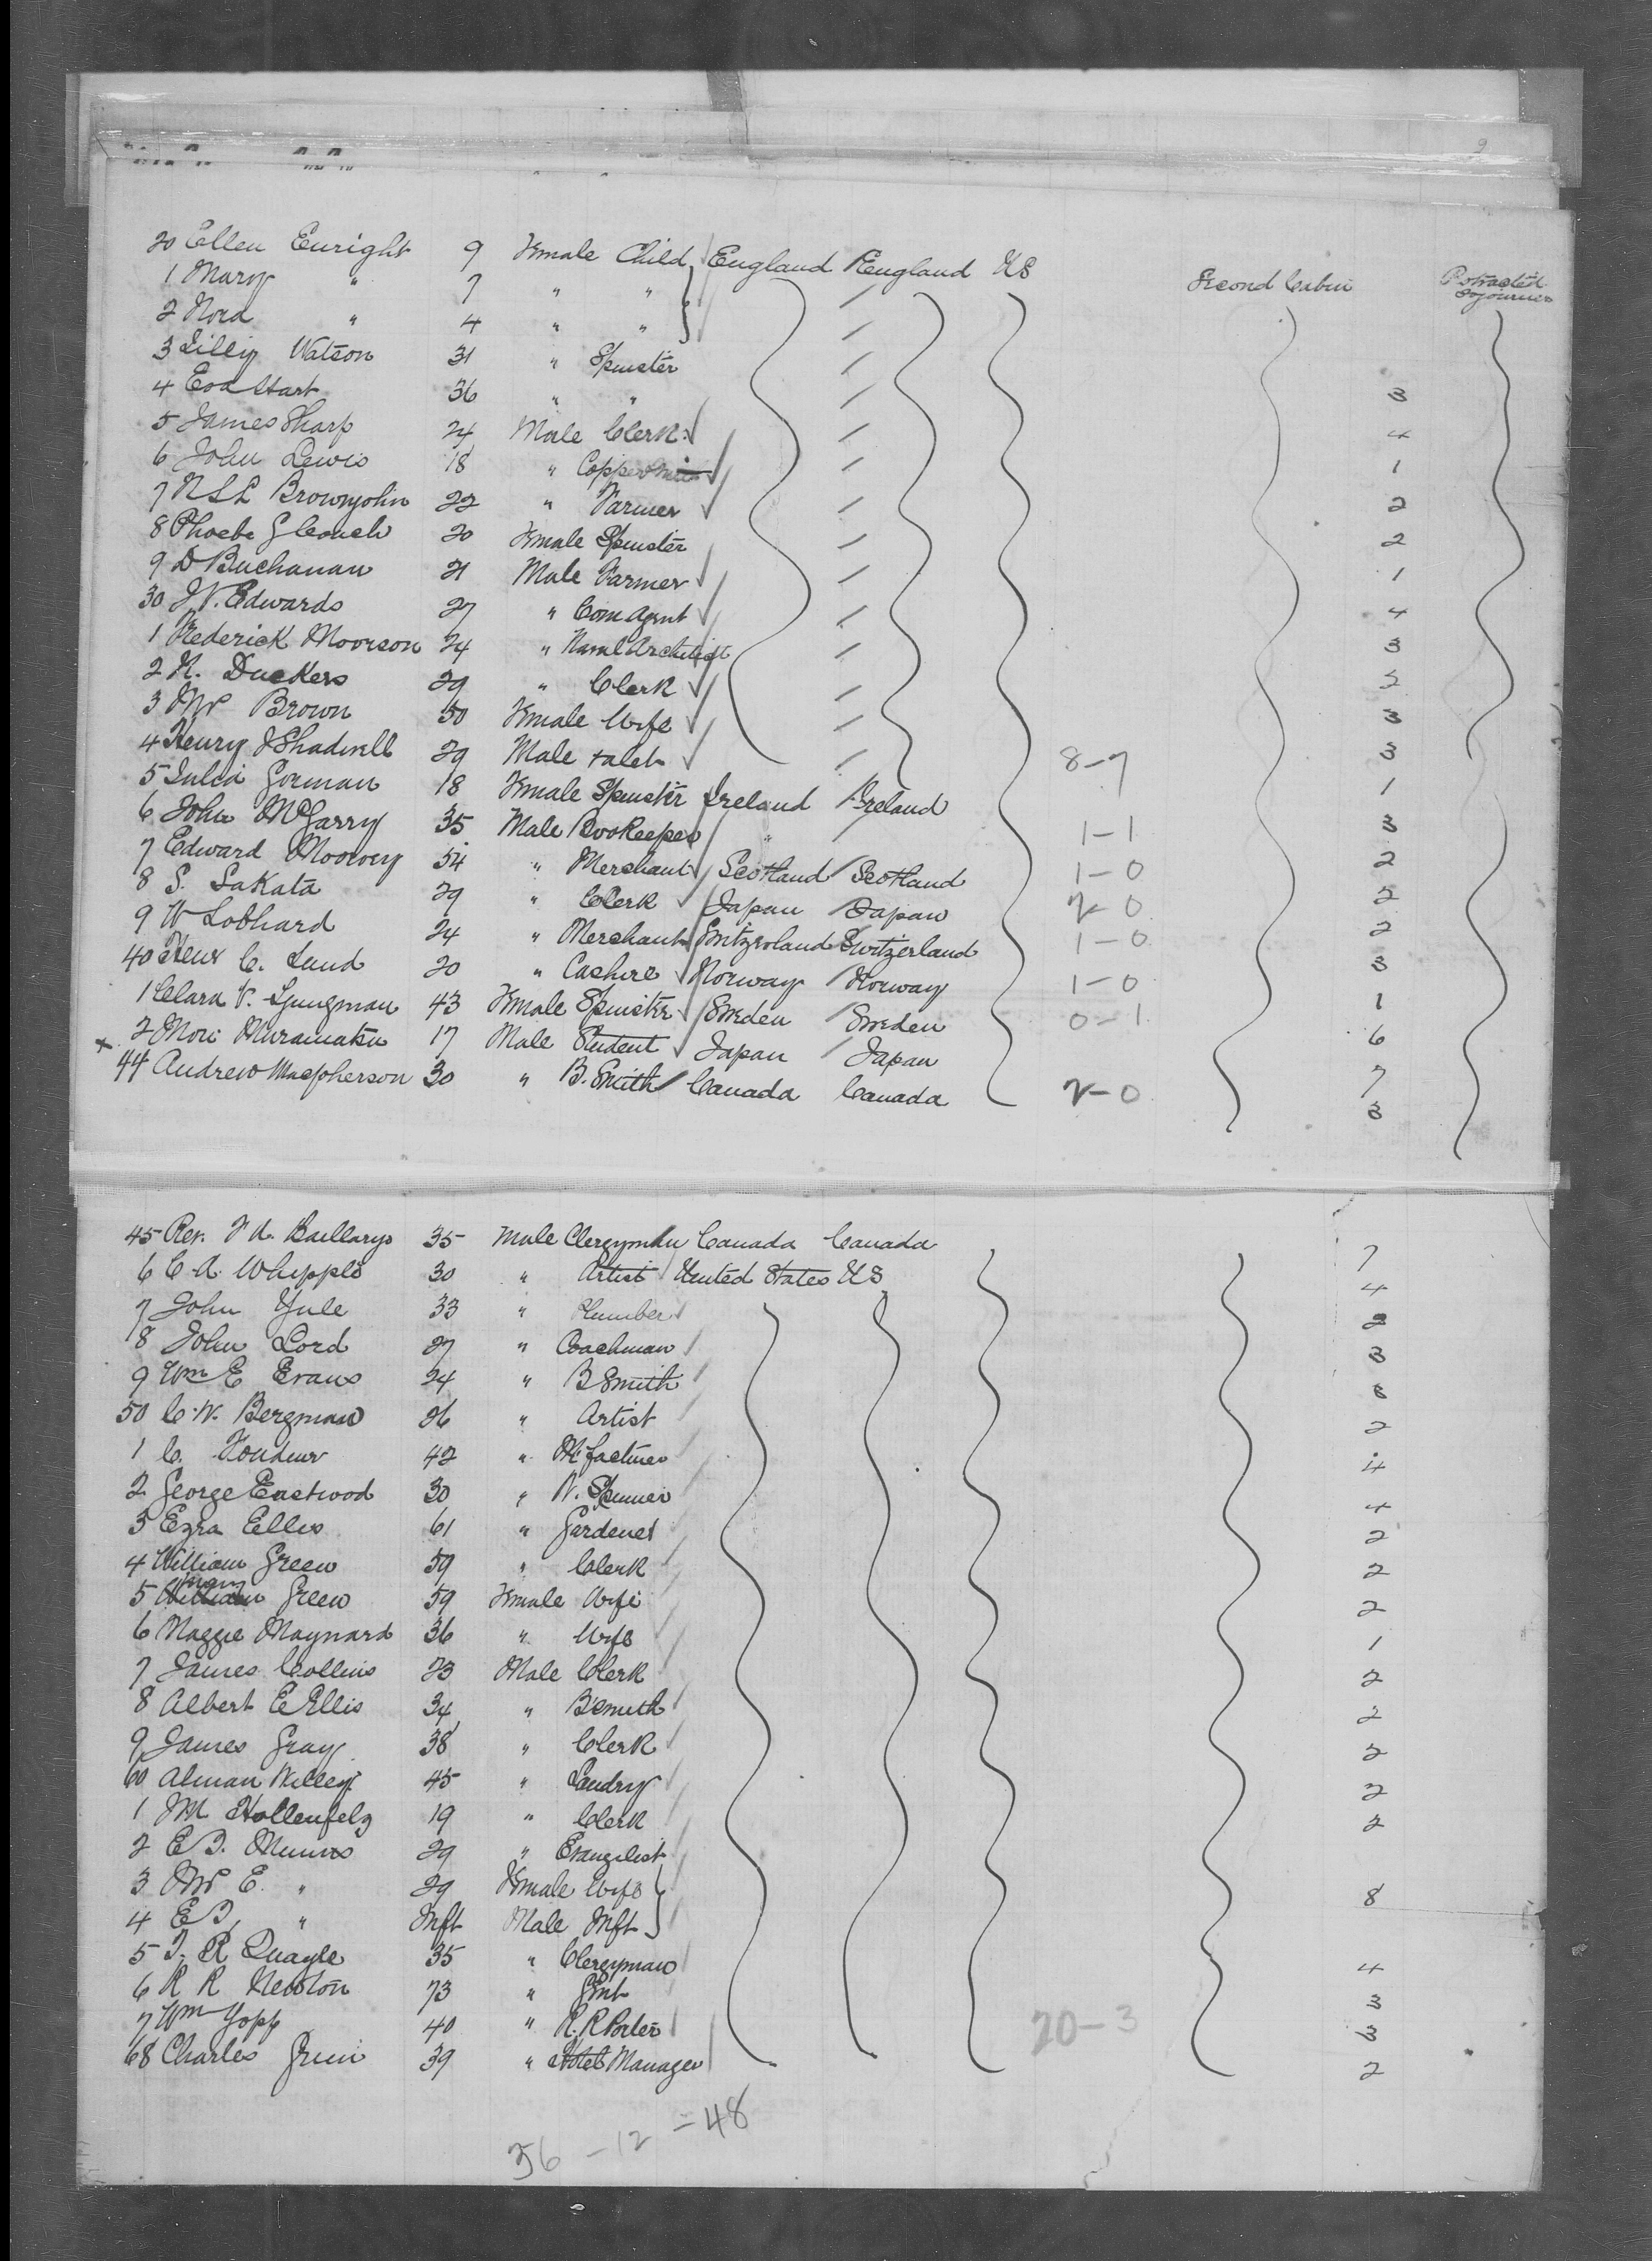 9
20 Ellen Enright 9 Female Child England England US Second Cabin Protracted Sojourner
1 Mary " 7 " "
2 Nora " 4 " "
3 Lilly Watson 31 " Spinster
4 Eva Hart 36 " " 3
5 James Sharp 24 Male Clerk 4
6 John Lewis 18 " 1
7 Brownjohn 22 " Farmer 2
8 Phoebe 20 Female Spinster 2
9 D Buchanan 21 Male Farmer 1
30 J V. Edwards 27 " Com Agent 4
1 Frederick Moorson 24 " Naval Architect 3
2 N. Duckers 29 " Clerk 2
3 Mrs Brown 50 Female Wife 3
4 Henry J Shadwell 29 Male Valet 8-7 3
5 Julia Gorman 18 Female Spinster Ireland Ireland 1
6 John McGarry 35 Male Bookeeper " 1-1 3
7 Edward 54 " Merchant Scotland Scotland 1-0 2
8 S. Sakata 29 " Clerk Japan Japan 2-0 2
9 W Lobhard 24 " Merchant Switzerland Switzerland 1-0 2
40 C. Lund 20 " Cashire Norway Norway 1-0 3
1 Clara V. Ljungman 43 Female Spinster Sweden Sweden 0-1 1
x 2 Mori Muramatsu 17 Male Student Japan Japan 6
44 Andrew Macpherson 30 " B. Smith Canada Canada 2-0 7
3
45 Rev. 35 Male Clergyman Canada Canada 7
6 C A. Whipple 30 " Artist United States US 4
7 John Yule 33 " Plumber 2
8 John Lord 27 " Coachman 3
9 Wm E Evans 24 " B Smith 3
50 C. W. Bergman 26 " Artist 2
1 C. 42 " Mfacturer 4
2 George Eastwood 30 " W. Spinner 4
3 Ezra Ellis 61 " Gardener 2
4 William Green 59 " Clerk 2
5 Green 59 Female Wife 2
6 Maggie Maynard 36 " Wife 1
7 James Collins 23 Male Clerk 2
8 Albert E Ellis 34 " B Smith 2
9 James Gray 38 " Clerk 2
60 Alman Willey 45 " Laudry 2
1 J M Hollenfelz 19 " Clerk 2
2 E D. Munro 29 " Evangelist
3 Mrs E. " 29 Female Wife 8
4 E D. " Inft Male Inft
5 T. R Quayle 35 " Clergyman 4
6 R R Newton 73 " Gent 3
7 Wm Yopp 40 " R. R Porter 20-3 3
68 Charles 39 " Hotel Manager 2
36 - 12 = 48